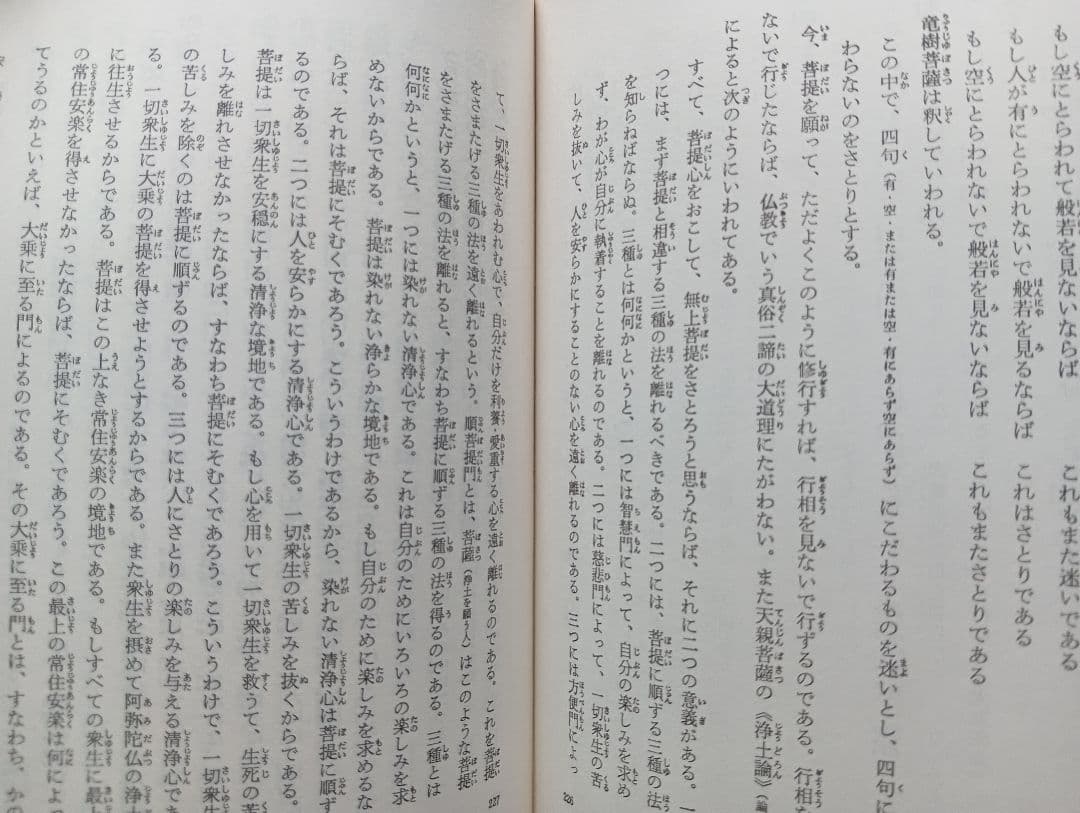 もし空にとらわれて般若を見ないならば　これもまた迷いである
もし人が有にとらわれないで般若を見るならば　これはさとりである
もし空にとらわれないで般若を見ないならば　これもまたさとりである
竜樹菩薩は釈していわれる。
この中で、四句（有・空・または有または空・有にあらず空にあらず）にこだわるものを迷いとし、四句に
わらないのをさとりとする。
今、菩提を願って、ただよくこのように修行すれば、行相を見ないで行ずるのである。行相な
ないで行じたならば、仏教でいう真俗二諦の大道理にたがわない。また天親菩薩の《浄土論》（論
によると次のようにいわれてある。
すべて、菩提心をおこして、無上菩提をさとろうと思うならば、それに二つの意義がある。一
つには、まず菩提と相違する三種の法を離れるべきである。二つには、菩提に順ずる三種の法
を知らねばならぬ。三種とは何何かというと、一つには智慧門によって、自分の楽しみを求め
ず、わが心が自分に執着することを離れるのである。二つには慈悲門によって、一切衆生の苦
しみを抜いて、人を安らかにすることのない心を遠く離れるのである。三つには方便門によっ
226
て、一切衆生をあわれむ心で、自分だけを利養・愛重する心を遠く離れるのである。これを菩提
をさまたげる三種の法を遠く離れるという。順菩提門とは、菩薩（浄土を願う人）はこのような菩提
をさまたげる三種の法を離れると、すなわち菩提に順ずる三種の法を得るのである。三種とは
何何かというと、一つには染れない清浄心である。これは自分のためにいろいろの楽しみを求
めないからである。菩提は染れない浄らかな境地である。もし自分のために楽しみを求めるな
らば、それは菩提にそむくであろう。こういうわけであるから、染れない清浄心は菩提に順ず
るのである。二つには人を安らかにする清浄心である。一切衆生の苦しみを抜くからである。
菩提は一切衆生を安穏にする清浄な境地である。もし心を用いて一切衆生を救うて、生死の苦
しみを離れさせなかったならば、すなわち菩提にそむくであろう。こういうわけで、一切衆
の苦しみを除くのは菩提に順ずるのである。三つには人にさとりの楽しみを与える清浄心であ
る。一切衆生に大乗の菩提を得させようとするからである。また衆生を摂めて阿弥陀仏の浄土
に往生させるからである。菩提はこの上なき常住安楽の境地である。もしすべての衆生に最上
の常住安楽を得させなかったならば、菩提にそむくであろう。この最上の常住安楽は何によっ
てうるのかといえば、大乗に至る門によるのである。その大乗に至る門とは、すなわち、かの
227